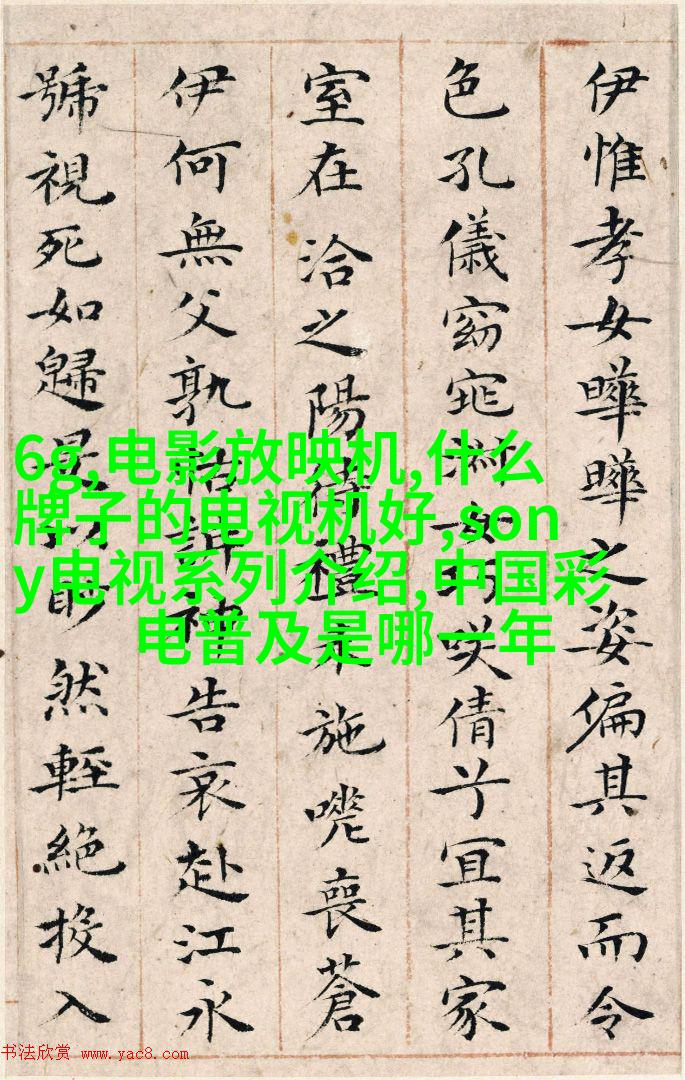 伊惟孝女曄曄之姿偏其返而令
色孔儀窈窕淑女巧咲倩兮宜其家
室在洽之陽待禮未施嗟喪蒼
伊何無父孰怙訴神告哀赴江永
號視死如歸是以眇然輕絕投入
6g,电影放映机,什么
牌子的电视机好,son
y电视系列介绍,中国彩
电普及是哪一年
书法欣赏 www.yac8.com